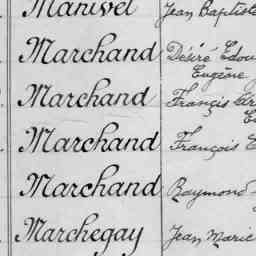 Manivel Jean Baptiste
Marchand Désiré Edou
Eugène
Marchand François
Marchand François E
Marchand Raymond
Marchegay Jean Marie